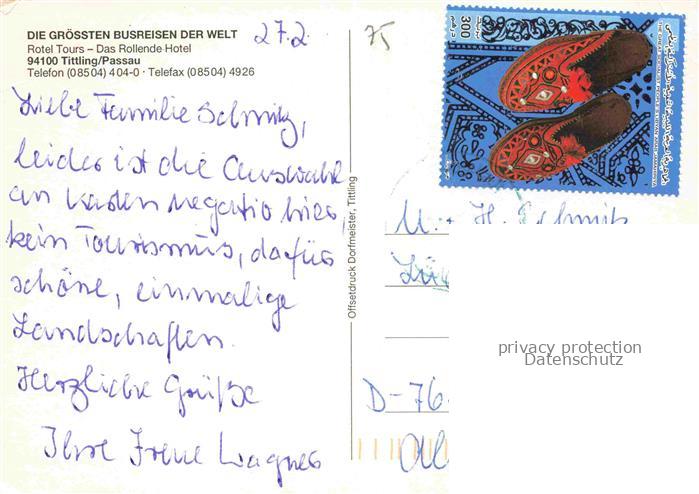 DIE GRÖSSTEN BUSREISEN DER WELT
Rotel Tours – Das Rollende Hotel
94100 Tittling/Passau
Telefon (08504) 404-0 · Telefax (08504) 4926
27.2.
Liebe Familie Schmitz,
leider ist die Auswahl
an Karten negativ hier,
kein Tourismus, dafür
schöne, einmalige
Landschaften.
Herzliche Grüße
Ihre Irene Wagner
Offsetdruck Dorfmeister, Tittling
75
300
H. Schmitz
D-76
privacy protection
Datenschutz